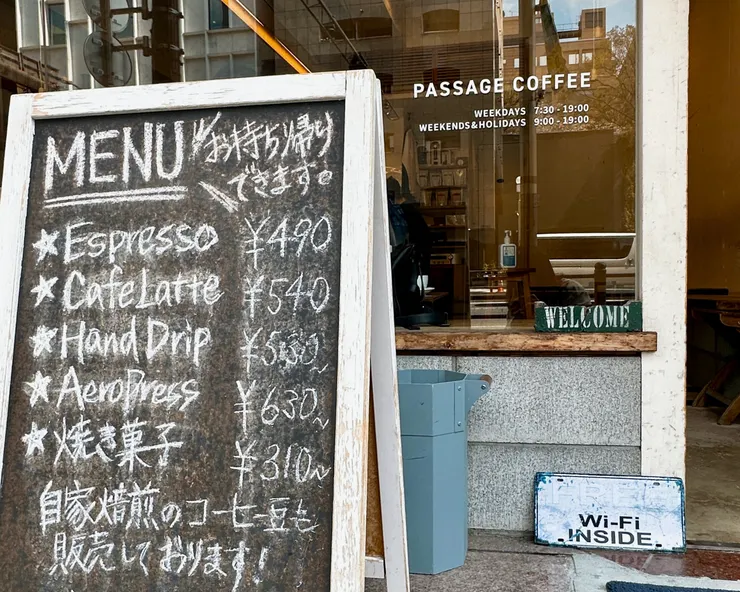 MENU お持ち帰り
できます。
★Espresso ¥490
★CafeLatte ¥540
★Hand Drip ¥550~
★AeroPress ¥630~
★焼き菓子 ¥310~
自家焙煎のコーヒー豆も
販売しております!
PASSAGE COFFEE
WEEKDAYS 7:30 - 19:00
WEEKENDS&HOLIDAYS 9:00 - 19:00
WELCOME
FREE
Wi-Fi
INSIDE